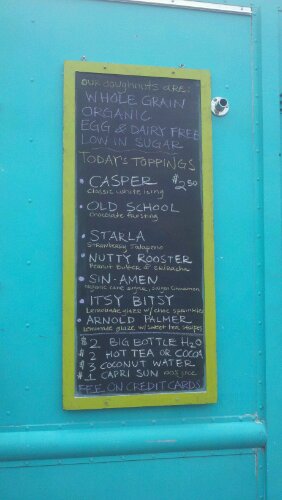 our doughnuts are:
WHOLE GRAIN
ORGANIC
EGG & DAIRY FREE
LOW IN SUGAR
TODAY'S TOPPINGS
• CASPER $2.50
classic white icing
• OLD SCHOOL
chocolate frosting
• STARLA
Strawberry Jalapeno
• NUTTY ROOSTER
Peanut Butter & sriracha
• SIN-AMEN
organic cane sugar, saigon cinnamon
• ITSY BITSY
Lemonade glaze w/ choc sprinkles
• ARNOLD PALMER
Lemonade glaze w/ sweet tea stripes
$2 BIG BOTTLE H2O
$2 HOT TEA OR COCOA
$3 COCONUT WATER
$1 CAPRI SUN 100% juice
FEE ON CREDIT CARDS